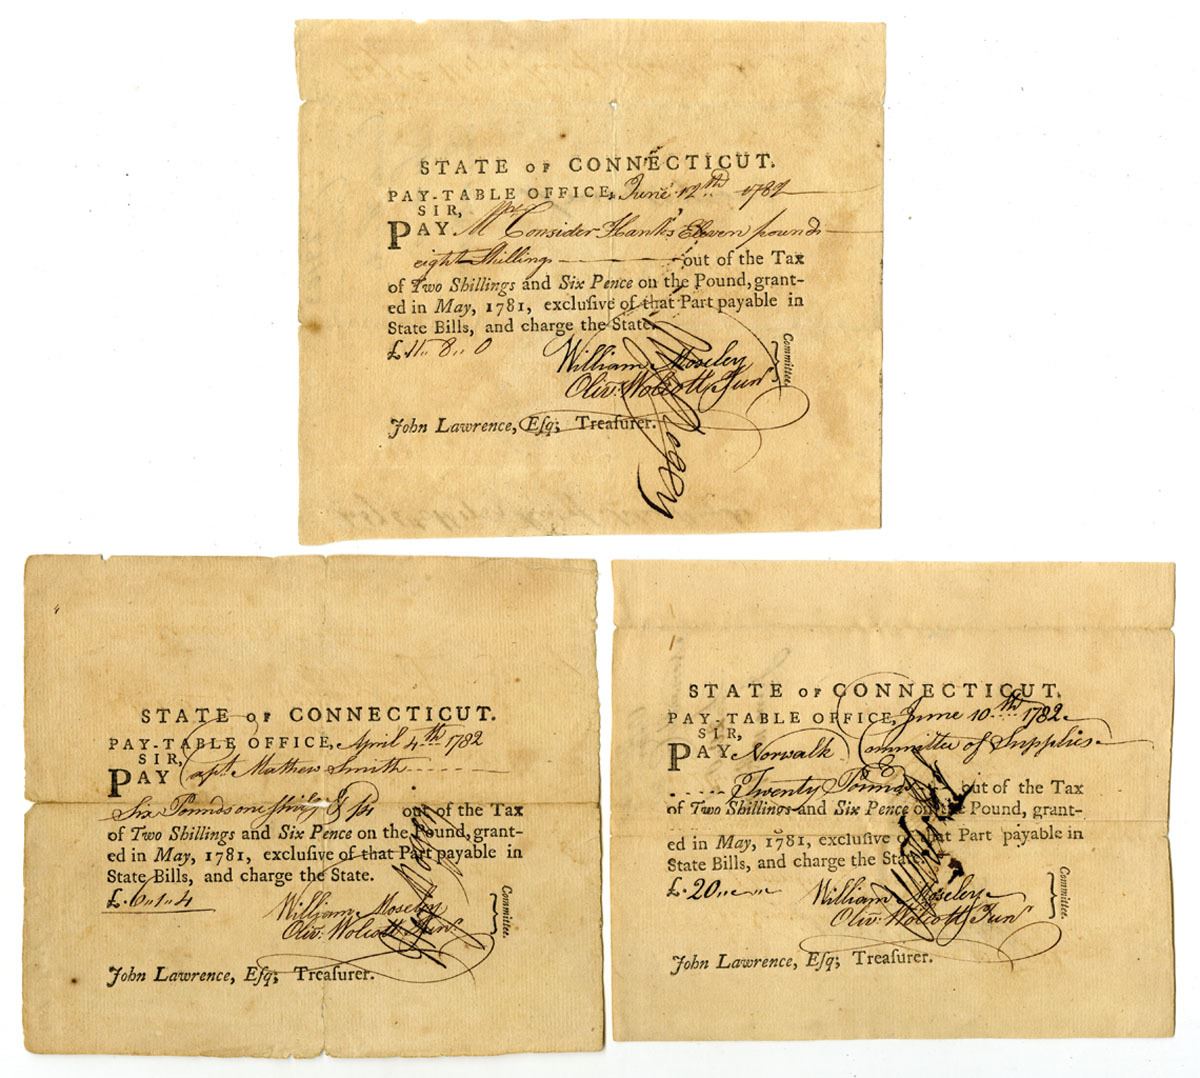 STATE OF CONNECTICUT.
PAY-TABLE OFFICE, June 12th 1782
SIR,
PAY Mr Consider Hanks Eleven pounds
eight Shillings out of the Tax
of Two Shillings and Six Pence on the Pound, grant-
ed in May, 1781, exclusive of that Part payable in
State Bills, and charge the State.
£.11..8..0
William Moseley
Olivr. Wolcott Junr
Committee.
John Lawrence, Esq; Treasurer.
STATE OF CONNECTICUT.
PAY-TABLE OFFICE, April 4th 1782
SIR,
PAY Capt. Mathew Smith
Six Pounds one out of the Tax
of Two Shillings and Six Pence on the Pound, grant-
ed in May, 1781, exclusive of that Part payable in
State Bills, and charge the State.
£.6..1..4
William Moseley
Olivr. Wolcott Junr.
Committee.
John Lawrence, Esq; Treasurer.
1
STATE OF CONNECTICUT.
PAY-TABLE OFFICE, June 10th 1782
SIR,
PAY Norwalk Committee of Supplies
Twenty Pounds out of the Tax
of Two Shillings and Six Pence on the Pound, grant-
ed in May, 1781, exclusive of that Part payable in
State Bills, and charge the State.
£.20
William Moseley
Olivr. Wolcott Junr
Committee.
John Lawrence, Esq; Treasurer.